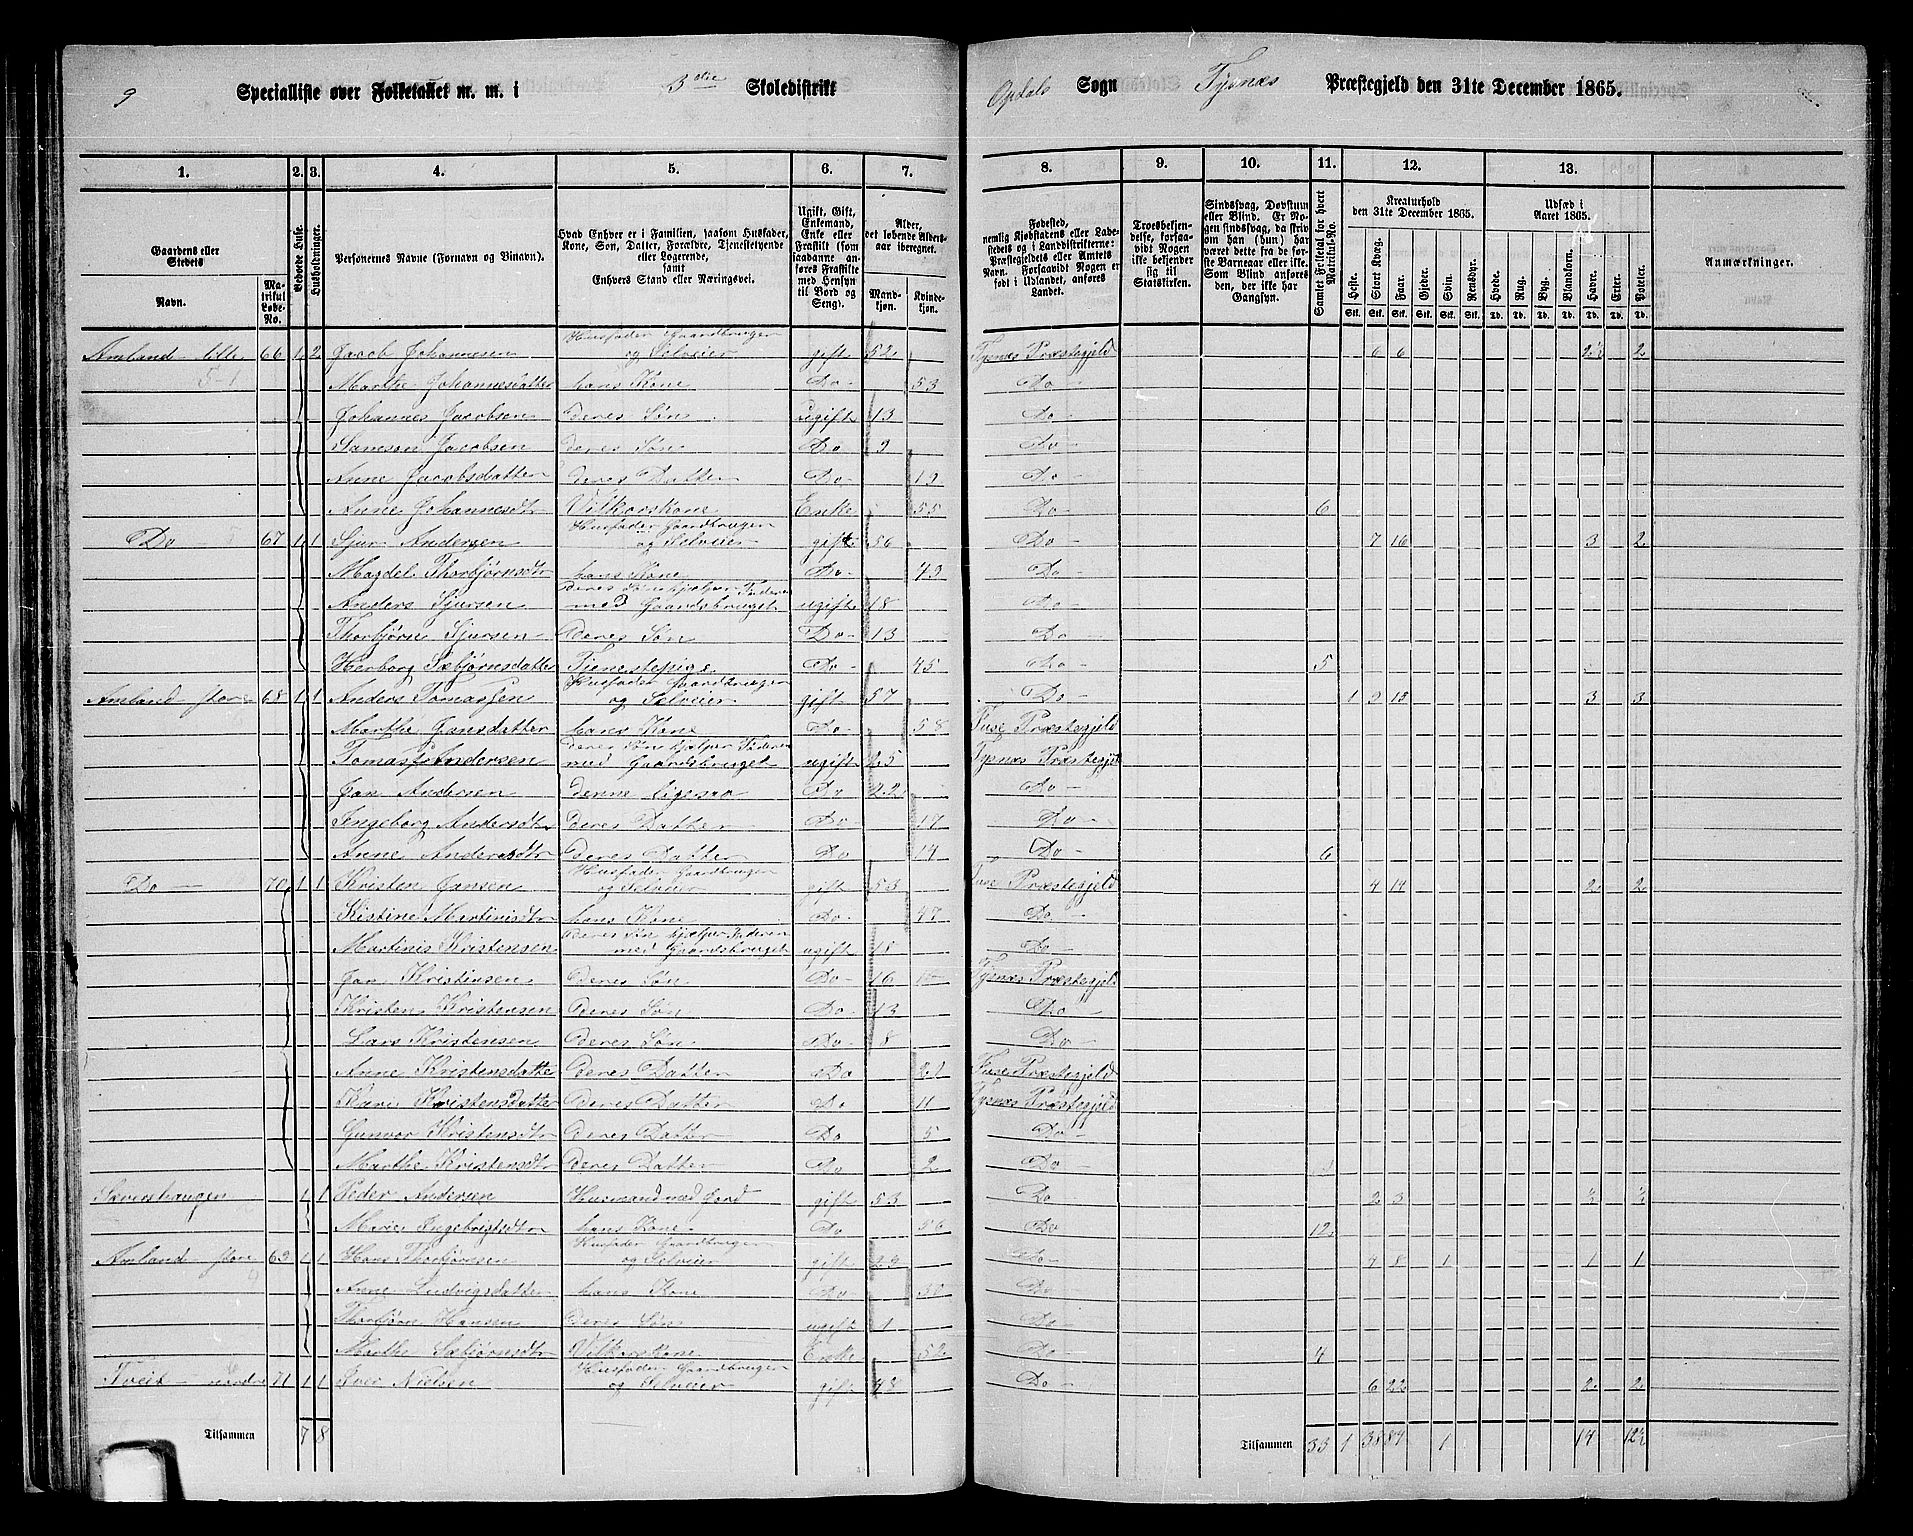 9 Specialliste over Folketallet m. m. i 3die Skoledistrikt Opdals Sogn Tysnæs Præstegjeld den 31te December 1865.
1. 2. 3. 4. 5. 6. 7. 8. 9. 10. 11. 12. 13.
Gaardens eller Stedets Navn. Matrikul Løbe-No. Beboede Huse. Husholdninger. Personernes Navne (Fornavn og Tilnavn). Hvad Enhver er i Familien, saasom Husfader, Kone, Søn, Datter, Forældre, Tjenestetyende eller Logerende, samt Enhvers Stand eller Næringsvei. Ugift, Gift, Enkemand, Enke eller Fraskilt (som saadanne anføres Fraskilte med Hensyn til Bord og Seng). Alder, det løbende Aldersaar iberegnet. Mandkjøn. Kvindekjøn.
Fødested, nemlig Kjøbstadens eller Ladestedets eller i Landdistrikterne: Præstegjeldets og i Amtets Navn. Forsaavidt Nogen er født i Udlandet, anføres Landet. Troesbekjendelse, forsaavidt Nogen ikke bekjender sig til Statskirken. Sindssvag, Døvstum eller Blind. Er Nogen sindssvag, da skriv om han (hun) har været dette fra de første Barneaar eller ikke. Som Blind anføres den, der ikke har Gangsyn. Samlet Folketal for hvert Matrikul-No. Kreaturhold den 31te December 1865. Udsæd i Aaret 1865. Anmærkninger.
Heste. Stort Kvæg. Faar. Gjeder. Svin. Rensdyr. Hvede. Rug. Byg. Blandkorn. Havre. Erter. Poteter.
Stk. Stk. Stk. Stk. Stk. Stk. Td. Td. Td. Td. Td. Td. Td.
Amland lille 66 1 2 Jacob Johannesen Husfader Gaardbruger og Selveier gift 52 Tysnæs Præstegjeld 6 6 2½ 2
5-1 Marthe Johannesdatter hans Kone Do 53 Do
Johannes Jacobsen deres Søn ugift 13 Do
Samson Jacobsen deres Søn Do 9 Do
Anne Jacobsdatter deres Datter Do 19 Do
Anne Johannesdtr Vilkorskone Enke 55 Do 6
Do 67 1 1 Sjur Andersen Husfader Gaardbruger og Selveier gift 56 Do 7 16 3 2
Magdel Thorbjørnsdtr hans Kone Do 49 Do
Anders Sjursen deres Søn hjælper Faderen med Gaardsbruget ugift 18 Do
Thorbjørn Sjursen deres Søn Do 13 Do
Herborg Sæbjørnsdatter Tjenestepige Do 45 Do 5
Amland store 68 1 1 Anders Tomassen Husfader Gaardbruger og Selveier gift 57 Do 1 9 18 3 3
Marthe Jansdatter hans Kone Do 58 Fuse Præstegjeld
Tomas Andersen deres Søn hjælper Faderen med Gaardsbruget ugift 25 Tysnæs Præstegjeld
Jan Andersen denne ligesaa Do 22 Do
Ingeborg Andersdtr deres Datter Do 17 Do
Anne Andersdtr deres Datter Do 14 Do 6
Do 70 1 1 Kristen Jansen Husfader Gaardbruger og Selveier gift 53 Fuse Præstegjeld 4 14 2 2
Kistine Martinisdtr hans Kone Do 47 Do
Martinis Kristensen deres Søn hjælper Faderen med Gaardsbruget ugift 18 Do
Jan Kristensen deres Søn Do 16 Tysnæs Præstegjeld
Kristen Kristensen deres Søn Do 13 Do
Lars Kristensen deres Søn Do 8 Do
Anne Kristensdatter deres Datter Do 21 Fuse Præstegjeld
Kari Kristensdatter deres Datter Do 11 Tysnæs Præstegjeld
Gunvor Kristensdtr deres Datter Do 5 Do
Marthe Kristensdtr deres Datter Do 2 Do
1 1 Peder Andersen Husmand med Jord gift 53 Do 2 3 ½ ½
Marie Ingebrigtsdtr hans Kone Do 56 Do 12
Amland store 69 1 1 Hans Thorbjørnsen Husfader Gaardbruger og Selveier gift 29 Do 4 8 1 1 1
Anne Ludvigsdatter hans Kone Do 30 Do
Thorbjørn Hansen deres Søn ugift 1 Do
Marthe Sæbjørnsdtr Vilkorskone Enke 52 Do 4
Tveit nordre 71 1 1 Iver Nielsen Husfader Gaardbruger og Selveier gift 48 Do 6 22 2 2
Tilsammen 7 8 Tilsammen 33 1 38 87 1 14 12½